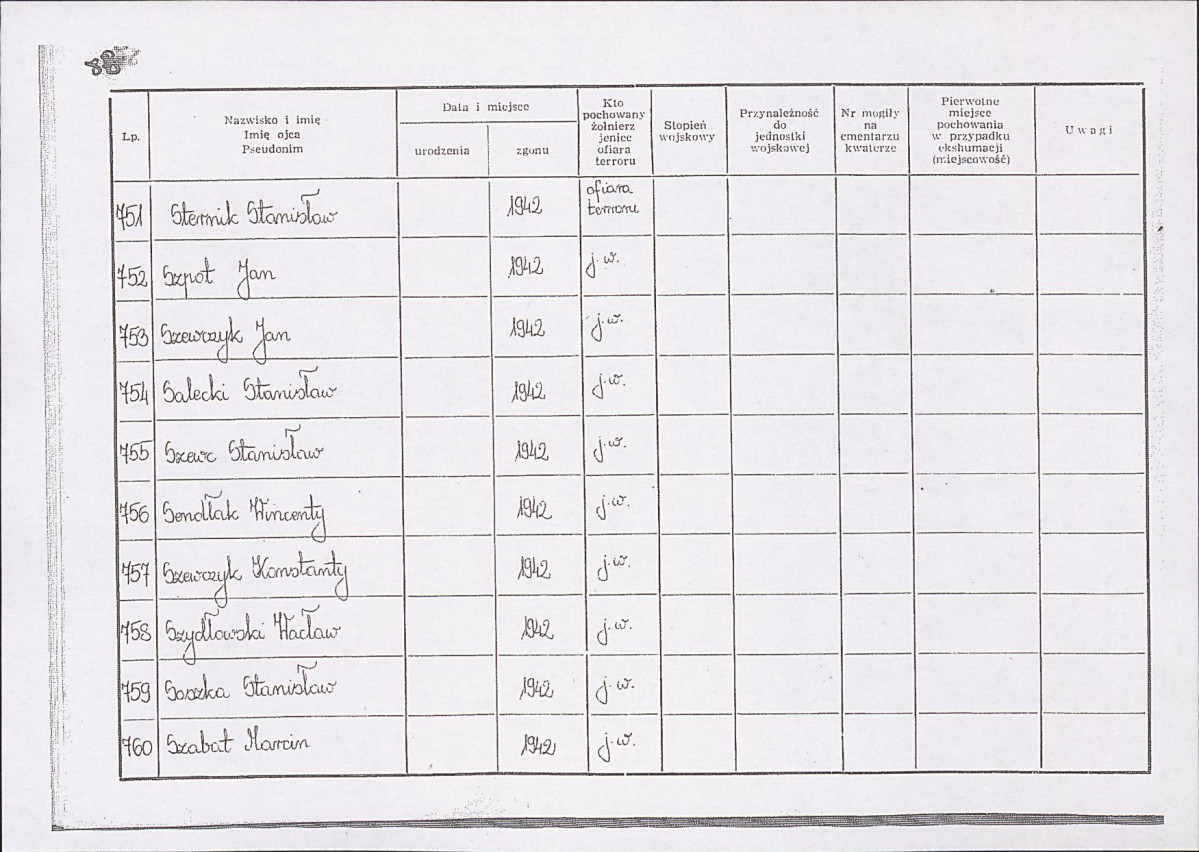 Lp.
Nazwisko i imię
Imię ojca
Pseudonim
Data i miejsce
urodzenia
zgonu
Kto
pochowany
żołnierz
jeniec
ofiara
terroru
Stopień
wojskowy
Przynależność
do
jednostki
wojskowej
Nr mogiły
na
cmentarzu
kwaterze
Pierwotne
miejsce
pochowania
w przypadku
ekshumacji
(miejscowość)
Uwagi
751 Stermik Stanisław 1942 ofiara
terroru
752 Szpot Jan 1942 j.w.
753 Szewczyk Jan 1942 j.w.
754 Salecki Stanisław 1942 j.w.
755 Szewc Stanisław 1942 j.w.
756 Sendłak Wincenty 1942 j.w.
757 Szewczyk Konstanty 1942 j.w.
758 Szydłowski Wacław 1942 j.w.
759 Soszka Stanisław 1942 j.w.
760 Szabat Marcin 1942 j.w.